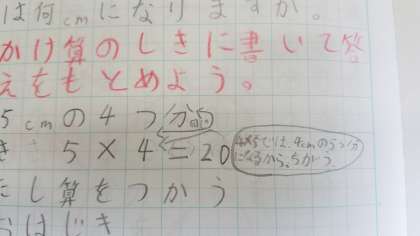 は何cmになりますか。
かけ算のしきに書いて答
えをもとめよう。
5cmの4つ分
き 5×4=20
4×5では、4cmの5つ分
になるから、ちがう。
たし算をつかう
おはじき